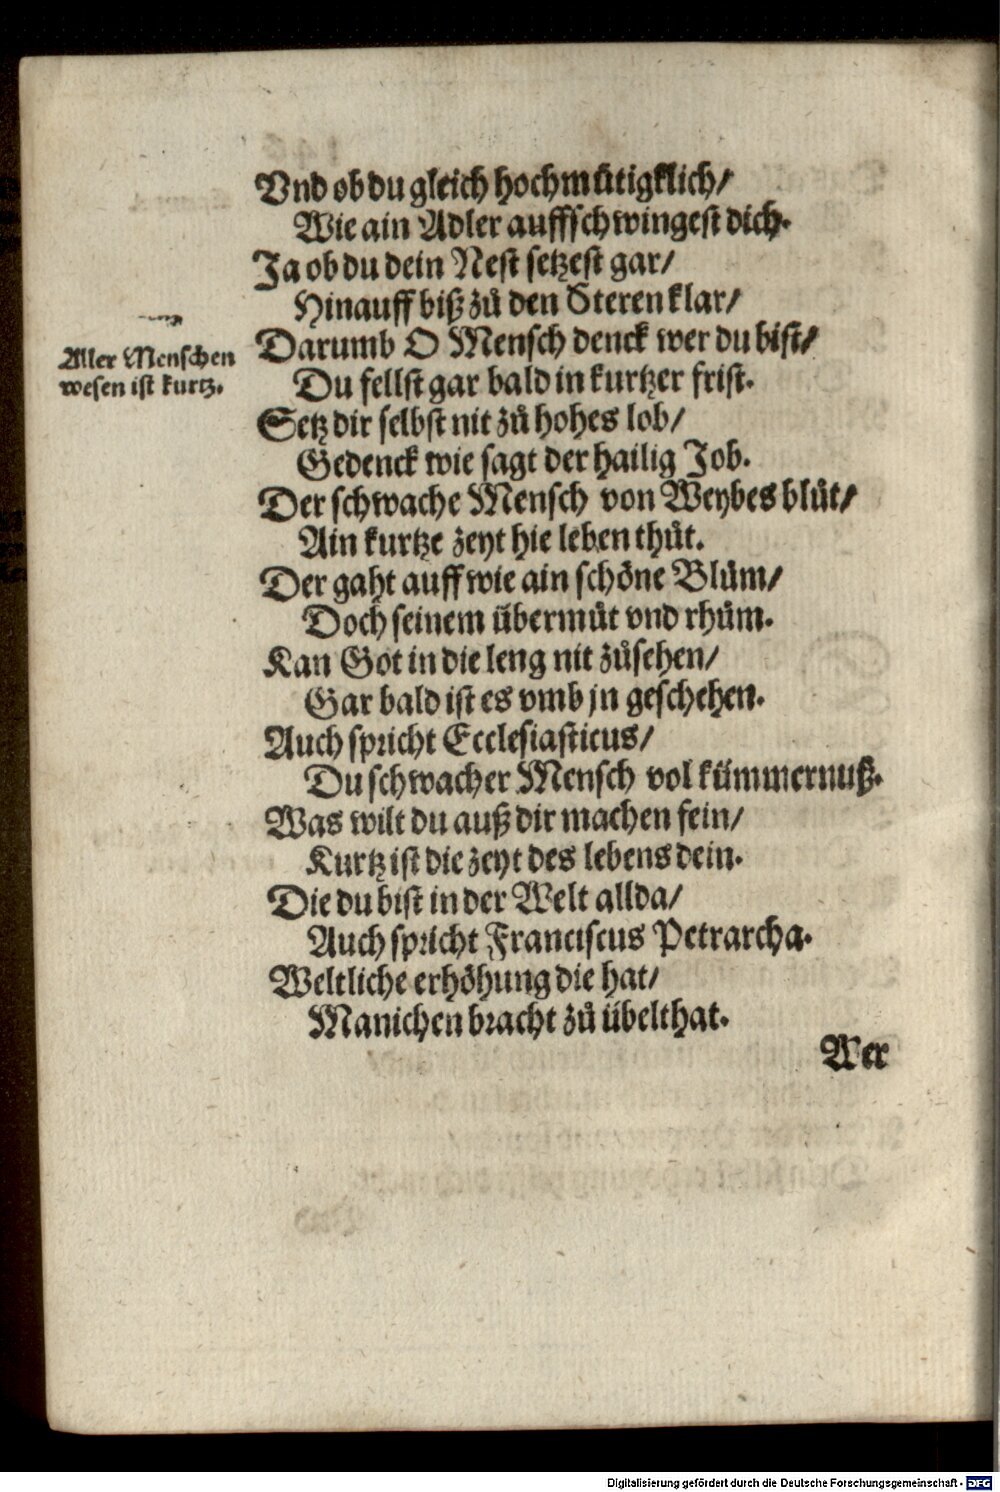 Vnd ob du gleich hochmütigklich/
Wie ain Adler auffschwingest dich.
Ja ob du dein Nest setzest gar/
Hinauff biß zů den Steren klar/
Aller Menschen
wesen ist kurtz.
Darumb O Mensch denck wer du bist/
Du fellst gar bald in kurtzer frist.
Setz dir selbst nit zů hohes lob/
Gedenck wie sagt der hailig Job.
Der schwache Mensch von Weybes blůt/
Ain kurtze zeyt hie leben thůt.
Der gaht auff wie ain schöne Blům/
Doch seinem übermůt vnd rhům.
Kan Got in die leng nit zůsehen/
Gar bald ist es vmb jn geschehen.
Auch spricht Ecclesiasticus/
Du schwacher Mensch vol kümmernuß.
Was wilt du auß dir machen fein/
Kurtz ist die zeyt des lebens dein.
Die du bist in der Welt allda/
Auch spricht Franciscus Petrarcha.
Weltliche erhöhung die hat/
Manichen bracht zů übelthat.
Wer
Digitalisierung gefördert durch die Deutsche Forschungsgemeinschaft - DFG